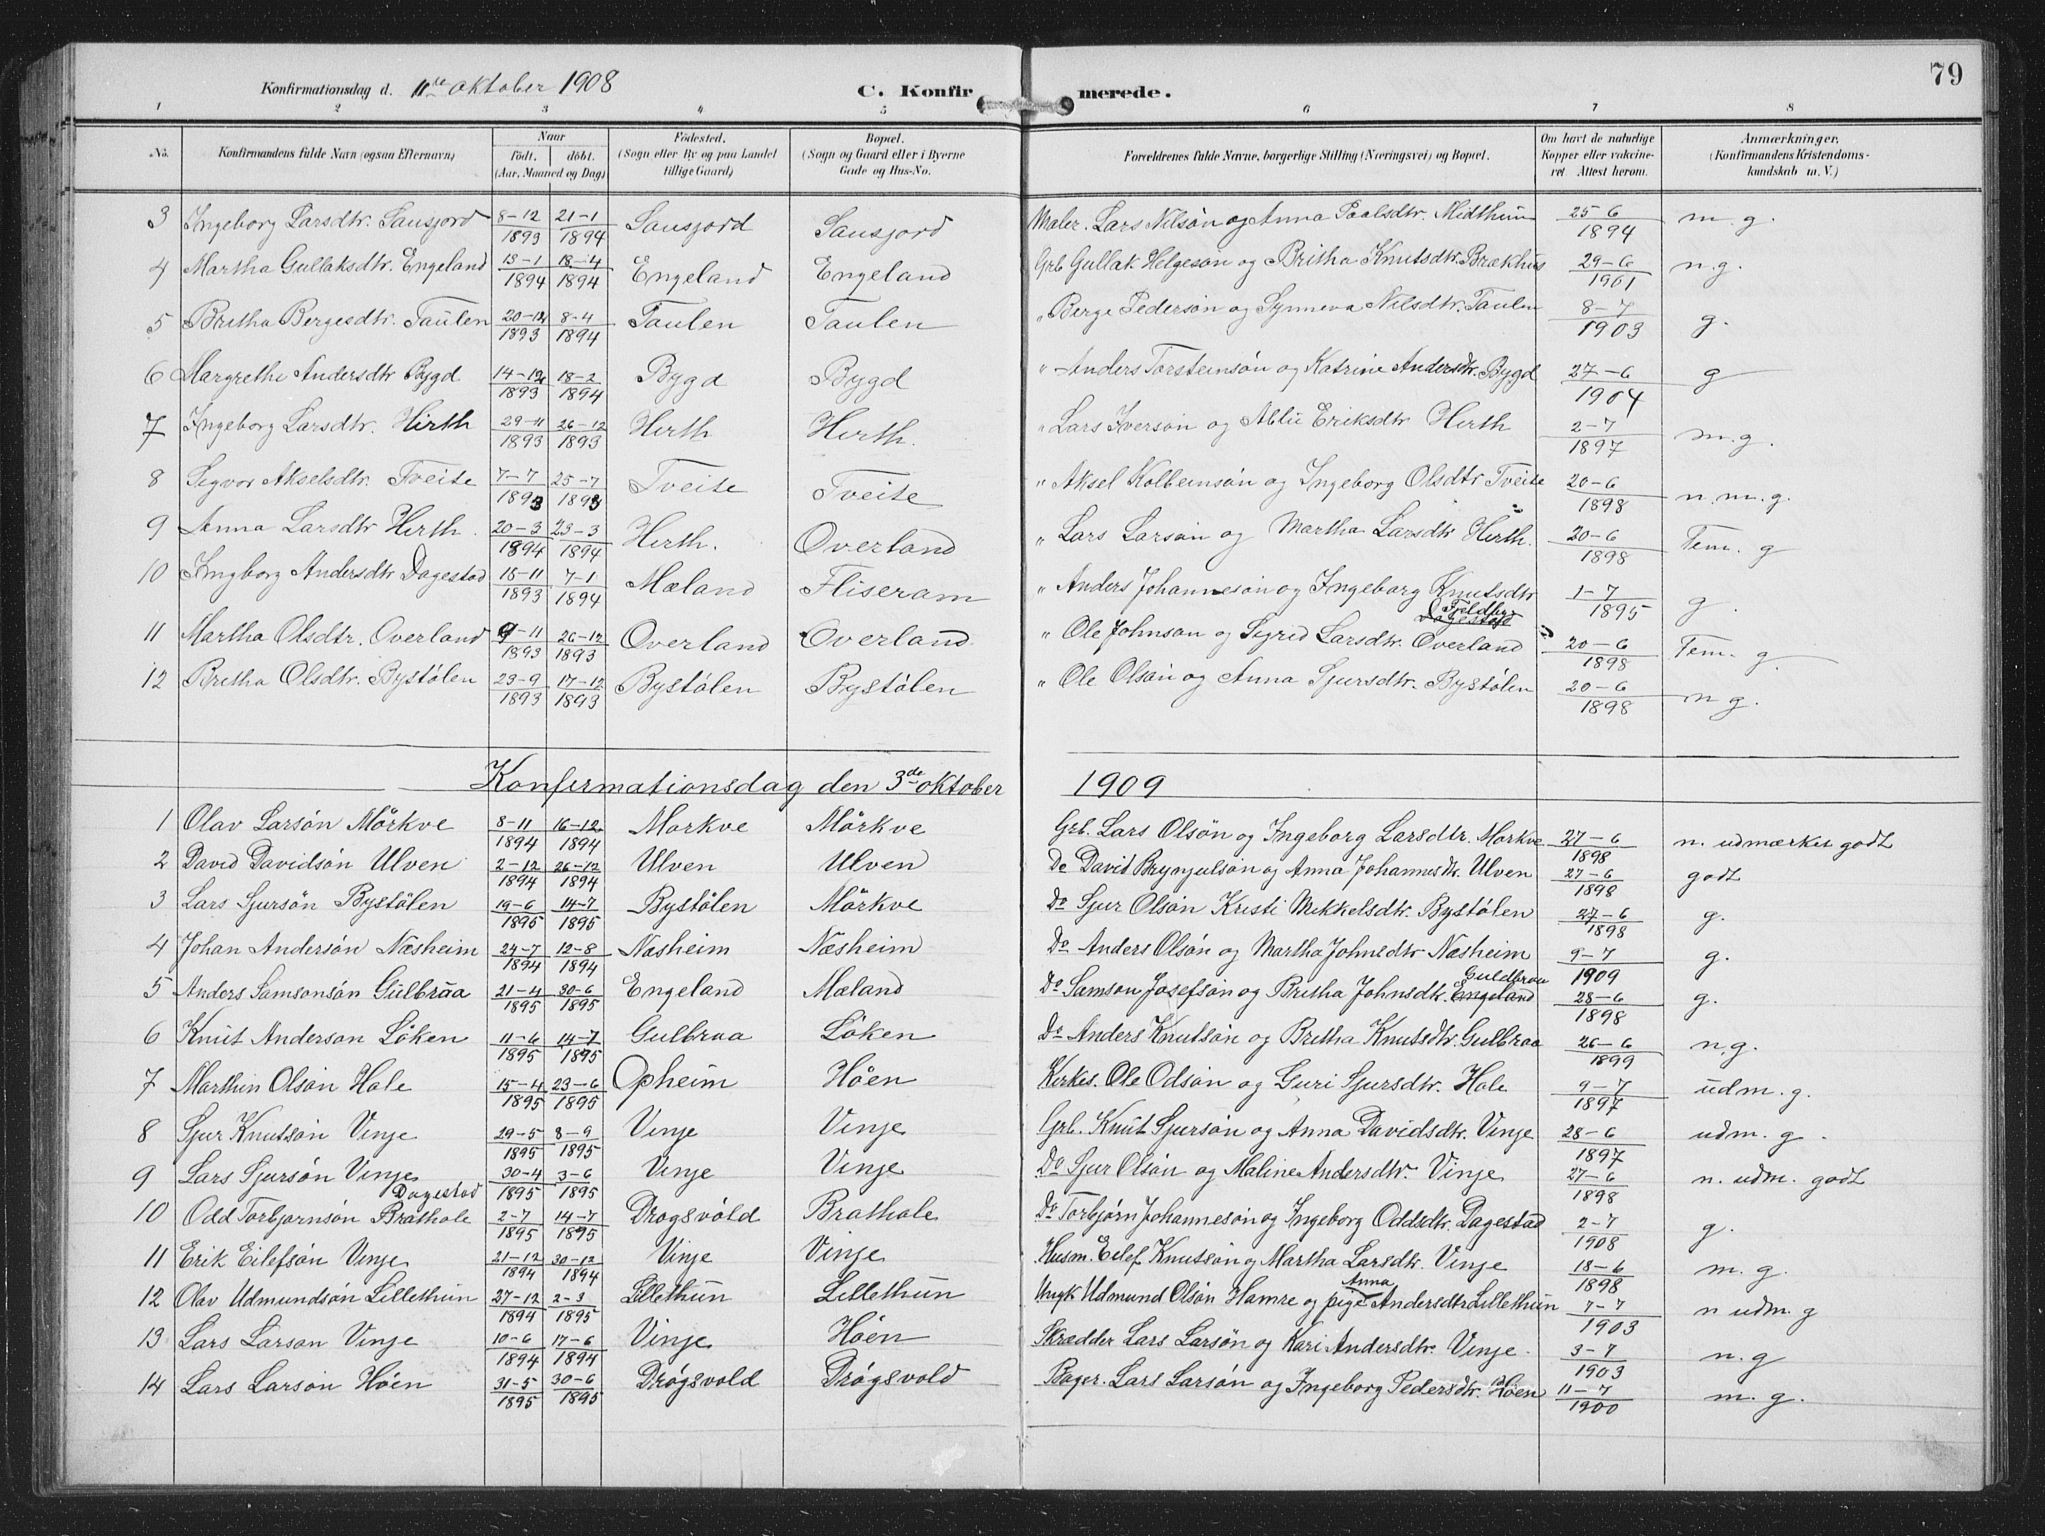 79
Konfirmationsdag d. 11te oktober 1908 C. Konfirmerede.
1 2 3 4 5 6 7 8
No. Konfirmandens fulde Navn (ogsaa Efternavn) Naar födt. döbt. (Aar, Maaned og Dag) Födested. (Sogn eller By og paa Landet tillige Gaard) Bopæl. (Sogn og Gaard eller i Byerne Gade og Hus-No. Forældrenes fulde Navne, borgerlige Stilling (Næringsvei) og Bopæl. Om havt de naturlige Kopper eller vakcineret. Attest herom. Anmærkninger. (Konfirmandens Kristendomskundskab m. V.)
3 Ingeborg Larsdtr. Sausjord 8-12 1893 21-1 1894 Sausjord Sausjord Maler. Lars Nilsøn og Anna Paalsdtr. Midthun 25-6 1894 m. g.
4 Martha Gullaksdtr. Engeland 13-1 1894 18-4 1894 Engeland Engeland Grb Gullak Helgesøn og Britha Knutsdtr. Brækhus 29-6 1901 n. g.
5 Britha Bergesdtr. Taulen 20-12 1893 8-4 1894 Taulen Taulen " Berge Pedersøn og Synneva Nilsdtr. Taulen 8-7 1903 g.
6 Margrethe Andersdtr Bygd 14-12 1893 18-2 1894 Bygd Bygd " Anders Torsteinsøn og Katrine Andersdtr. Bygd 27-6 1904 g
7 Ingeborg Larsdtr. Hirth 29-11 1893 26-12 1893 Hirth Hirth. " Lars Iversøn og Ablu Eriksdtr Hirth 2-7 1897 m. g.
8 Segvor Akselsdtr. Tveite 7-7 1893 25-7 1893 Tveite Tveite " Aksel Kolbeinsøn og Ingeborg Olsdtr Tveite 20-6 1898 n. m. g.
9 Anna Larsdtr Hirth 20-3 1894 23-3 1894 Hirth. Overland " Lars Larsøn og Martha Larsdtr Hirth. 20-6 1898 Tem. g
10 Ingborg Andersdtr Dagestad 15-11 1893 7-1 1894 Mæland Fliseram " Anders Johannesøn og Ingeborg Knutsdtr Dagestad 1-7 1895 g.
11 Martha Olsdtr. Overland 9-11 1893 26-12 1893 Overland Overland " Ole Johnsøn og Segrid Larsdtr. Overland 20-6 1898 Tem. g.
12 Britha Olsdtr. Bystølen 23-9 1893 17-12 1893 Bystølen Bystølen " Ole Olsøn og Anna Sjursdtr. Bystølen 20-6 1898 n g.
Konfirmationsdag den 3de oktober 1909
1 Olav Larsøn Mørkve 8-11 1894 16-12 1894 Morkve Mørkve Grb. Lars Olsøn og Ingeborg Larsdtr. Morkve 27-6 1898 n. udmærket godt
2 David Davidsøn Ulven 2-12 1894 26-12 1894 Ulven Ulven Do David Brynjulsøn og Anna Johannesdtr. Ulven 27-6 1898 godt
3 Lars Sjursøn Bystølen 19-6 1895 14-7 1895 Bystølen Mørkve Do Sjur Olsøn Kristi Mikkelsdtr. Bystølen 27-6 1898 g.
4 Johan Andersøn Næsheim 24-7 1894 12-8 1894 Næsheim Næsheim Do Anders Olsøn og Martha Johnsdtr Næsheim 9-7 1909 g.
5 Anders Samsonsøn Gulbraa 21-4 1895 30-6 1895 Engeland Mæland Do Samson Josefsøn og Britha Johnsdtr. Engeland Guldbraa 28-6 1898 g.
6 Knut Anderson Løken 11-6 1895 14-7 1895 Gulbraa Løken Do Anders Knutsøn og Britha Knutsdtr. Gulbraa 26-6 1899 n. g.
7 Marthin Olsøn Hole 15-4 1895 23-6 1895 Opheim Høen Kirkes. Ole Odsøn og Guri Sjursdtr. Hole 9-7 1897 udm. g.
8 Sjur Knutsøn Vinje 29-5 1895 8-9 1895 Vinje Vinje Grb. Knut Sjursøn og Anna Davidsdtr. Vinje 28-6 1897 udm. g.
9 Lars Sjursøn Vinje 30-4 1895 3-6 1895 Vinje Vinje Do Sjur Olsøn og Maline Andersdtr. Vinje 27-6 1898 n. udm. godt
10 Odd Torbjørnsøn Brathole Dagestad 2-7 1895 14-7 1895 Drogsvold Brathole Do Torbjørn Johannesøn og Ingeborg Oddsdtr. Dagestad 2-7 1908 g.
11 Erik Eilefsøn Vinje 21-12 1894 30-12 1894 Vinje Vinje Husm. Eilef Knutsøn og Martha Larsdtr. Vinje 18-6 1898 m. g.
12 Olav Udmundsøn Lillethun 27-12 1894 2-3 1895 Lillethun Lillethun Ungk Udmund Olsøn Hamre og pige Anna Andersdtr Lillethun 7-7 1903 n udm. g
13 Lars Larson Vinje 10-6 1894 17-6 1894 Vinje Høen Skrædder Lars Larsøn og Kari Andersdtr. Vinje. 3-7 1903 n. g
14 Lars Larsøn Høen 31-5 1895 30-6 1895 Drøgsvold Drøgsvold Bager. Lars Larsøn og Ingeborg Pedersdtr. Høen 11-7 1900 m. g.